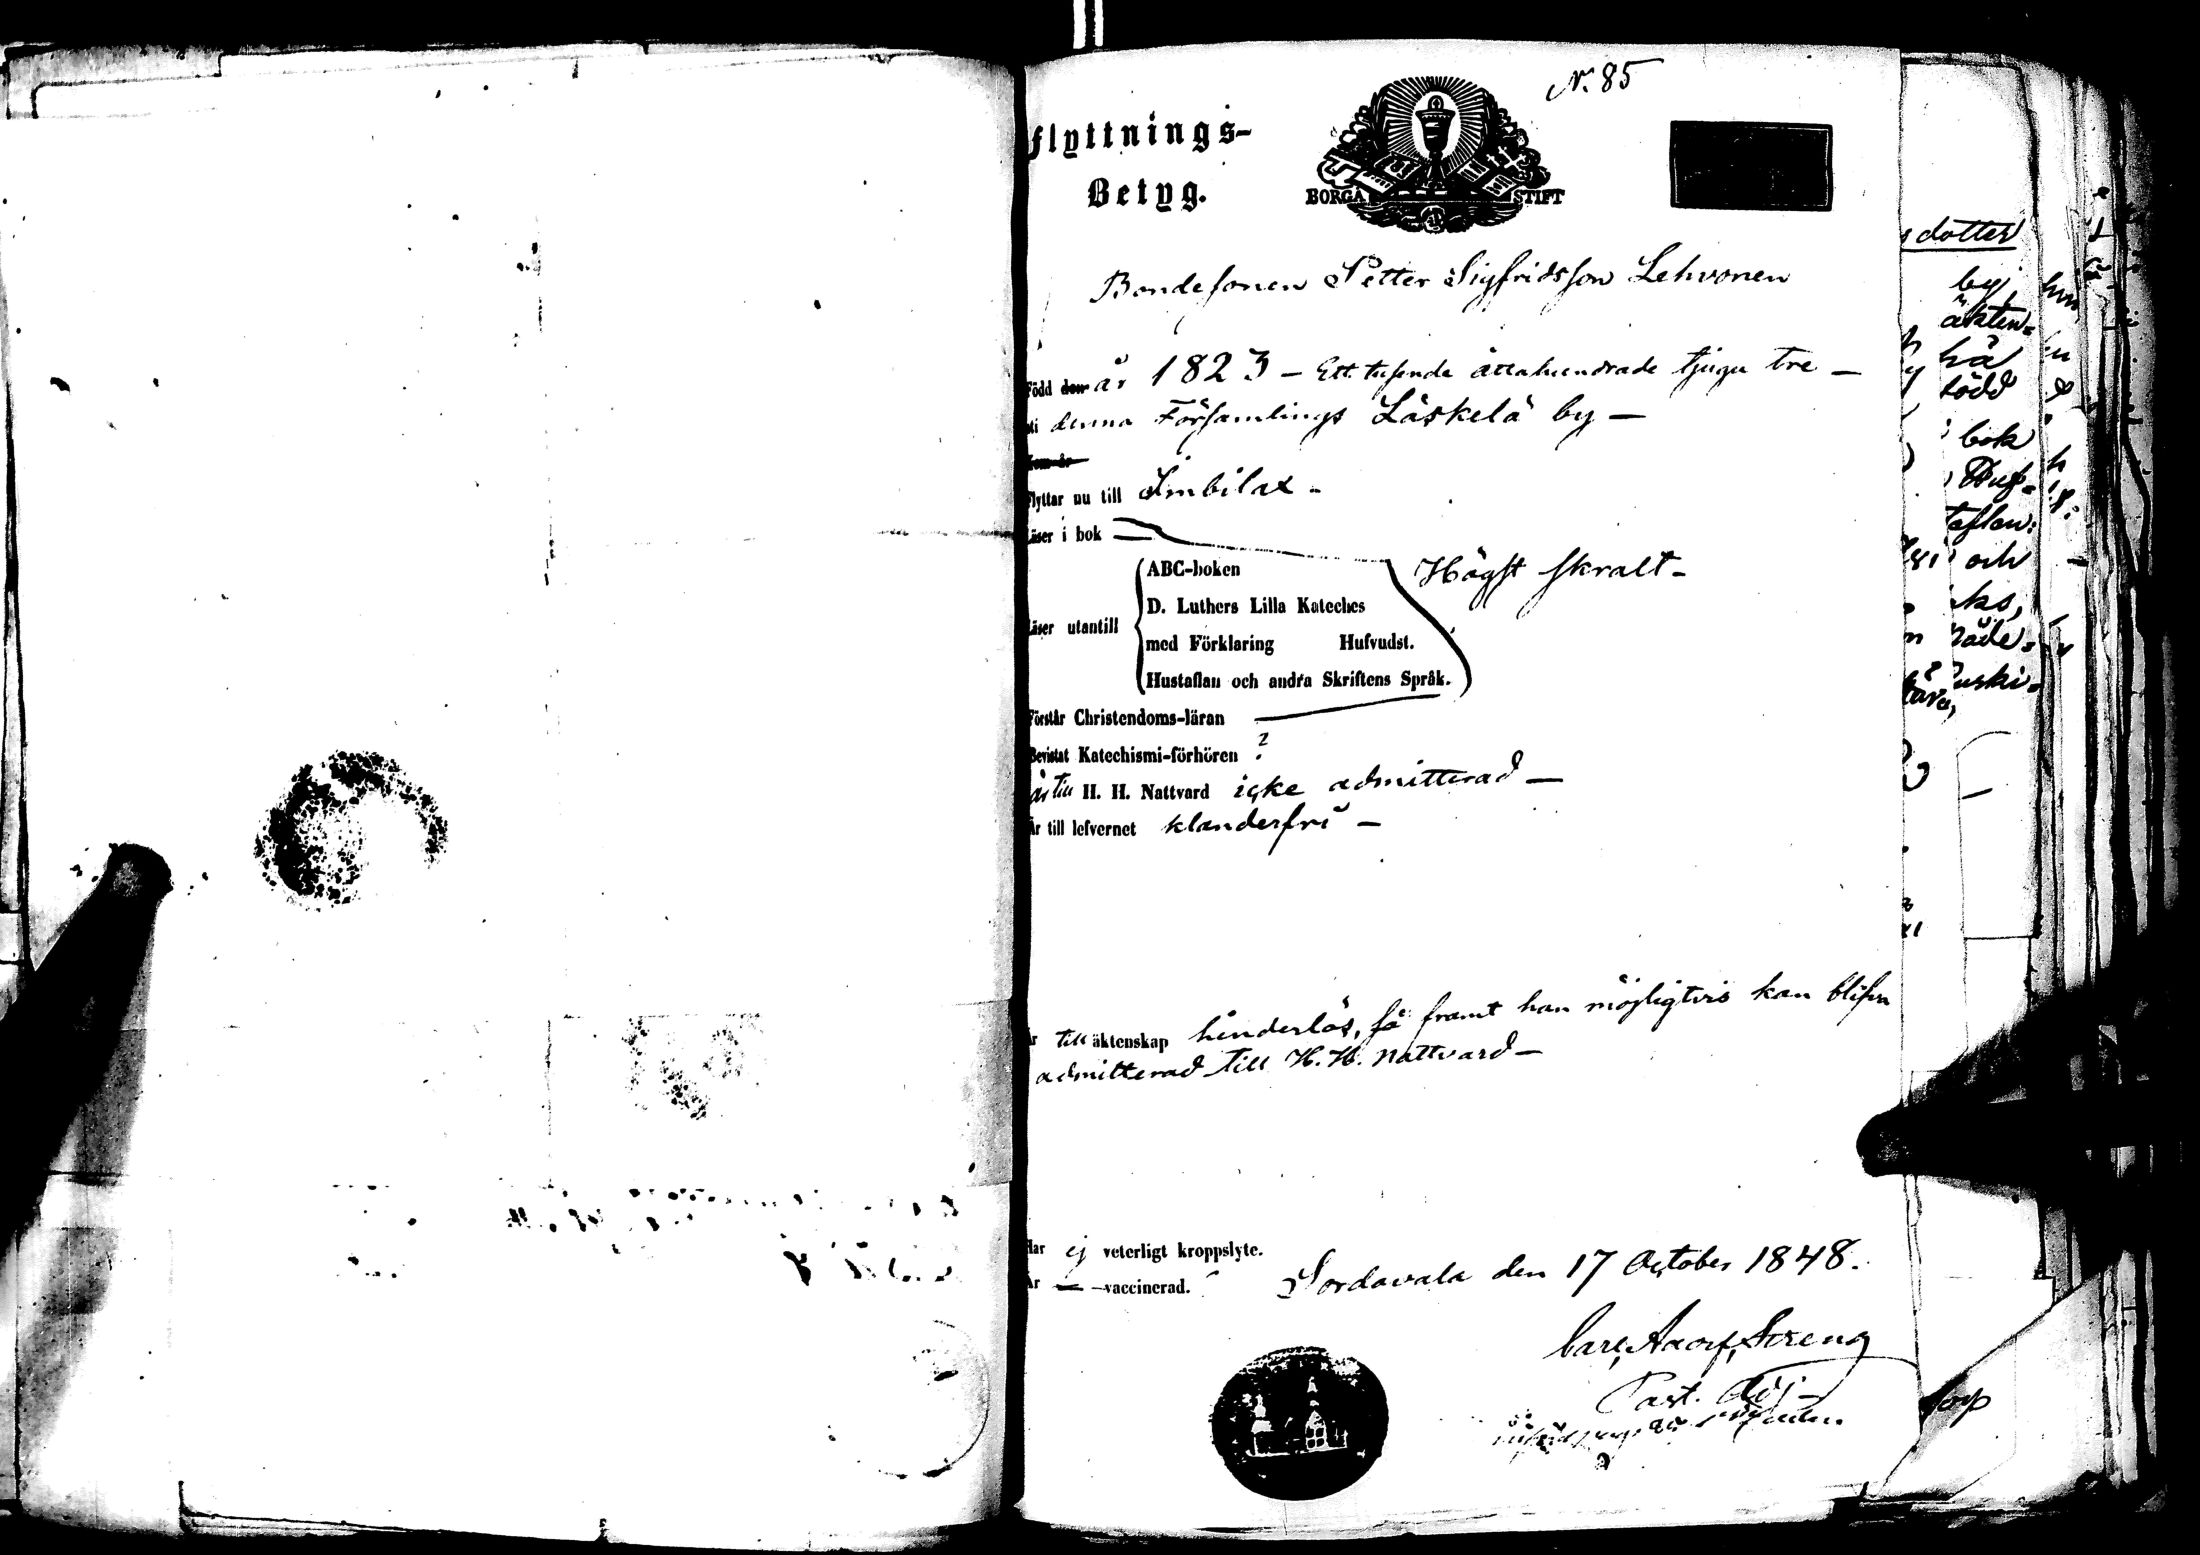 N. 85
Flyttnings-
Betyg.
BORGÅ STIFT
Bondesonen Petter Sigfridsson Lehvonen
Född den år 1823 – Ett tusende åttahundrade tjugu tre –
uti denna Församlings Läskelä by –
Kom år
Flyttar nu till Imbilax –
Läser i bok —
ABC-boken
Högst skralt –
D. Luthers Lilla Kateches
Läser utantill
med Förklaring Hufvudst.
Hustaflan och andra Skriftens Språk.
Förstår Christendoms-läran —
Bevistat Katechismi-förhören ?
är till H. H. Nattvard icke admitterad –
Är till lefvernet klanderfri –
Är till äktenskap hinderlös, så framt han möjligtvis kan blifva
admitterad till H. H. Nattvard –
Har ej veterligt kroppslyte.
Är — vaccinerad.
Sordavala den 17 October 1848.
Carl Adolf Streng
Past. Adj.
dotter
by
äkten=
född
bok
Huf=
taflan:
och